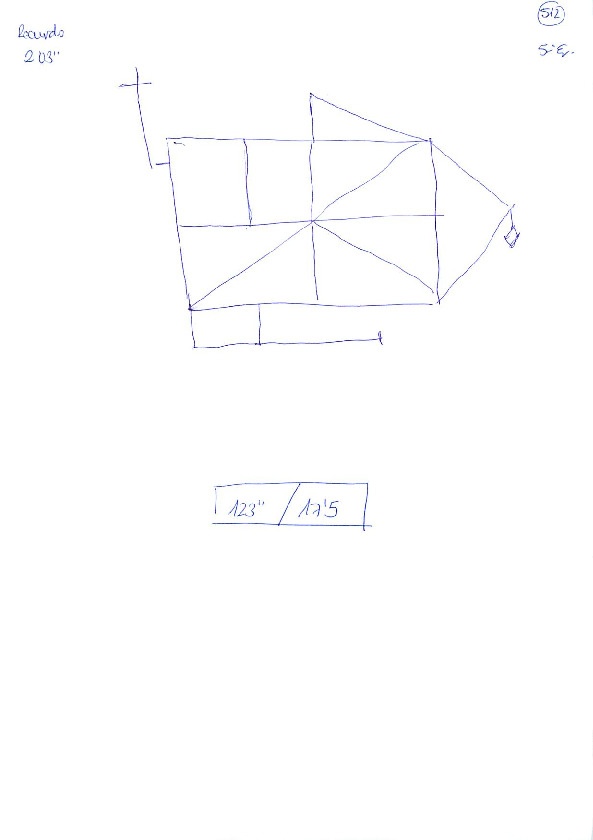 Recuerdo
2 03"
512
123" / 17'5